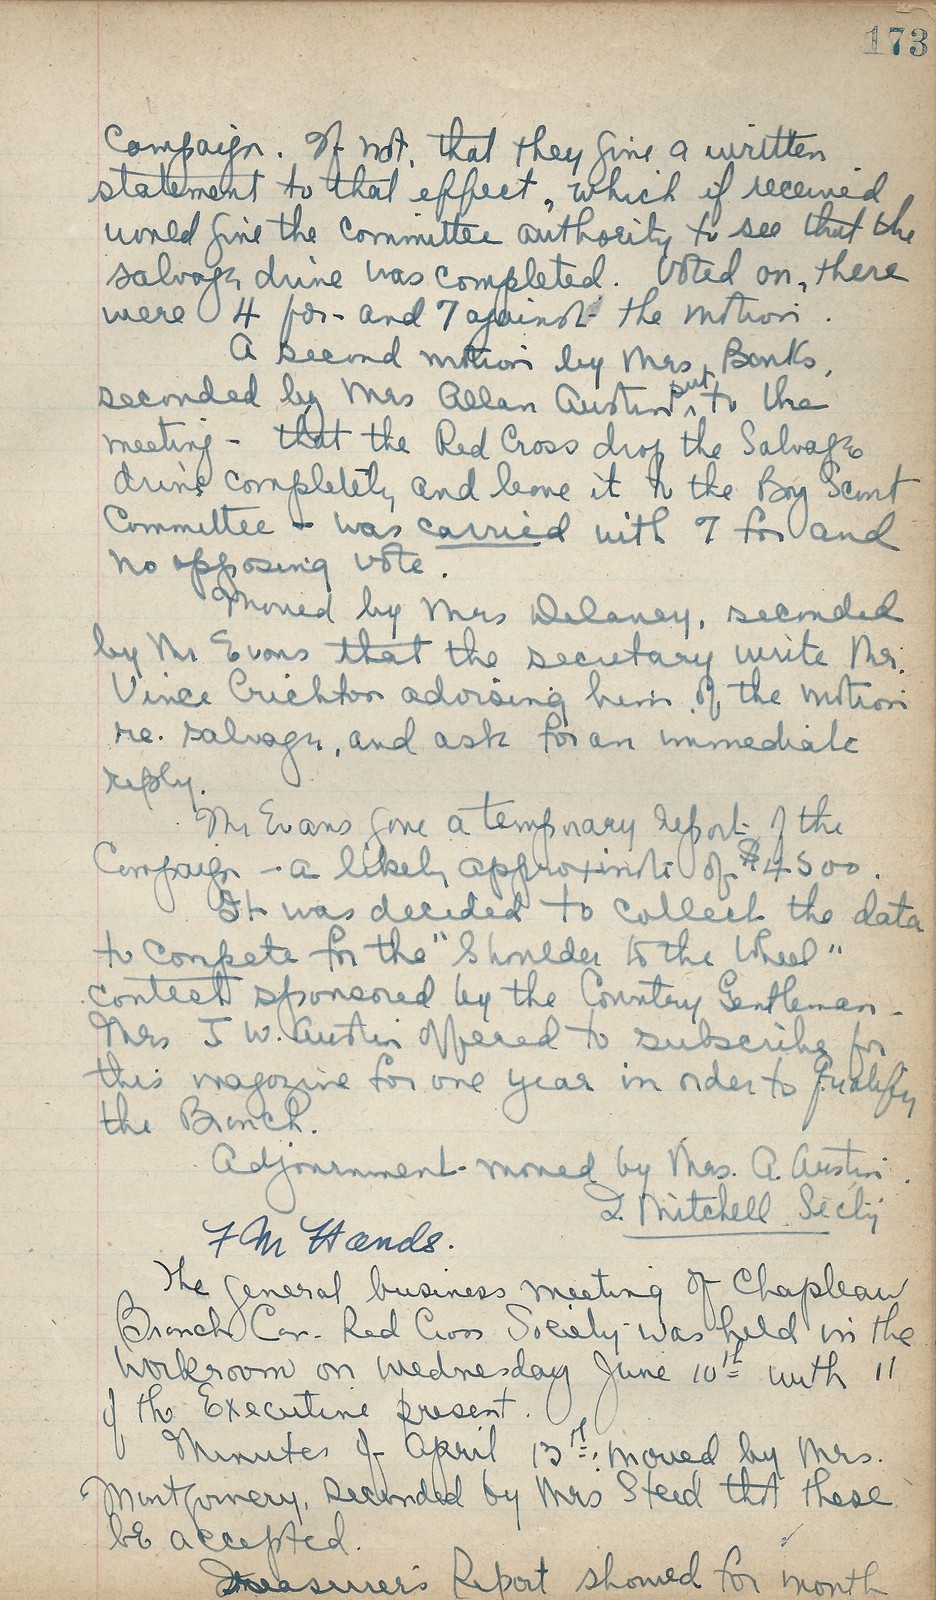 173
Campaign. If not, that they give a written
statement to that effect, which if received
would give the committee authority to see that the
salvage drive was completed. Voted on, there
were 4 for - and 7 against the motion.
A second motion by Mrs. Banks,
seconded by Mrs Allan Austin put to the
meeting - that the Red Cross drop the Salvage
drive completely and leave it to the Boy Scout
Committee - was carried with 7 for and
no opposing vote.
Moved by Mrs Delaney, seconded
by Mr Evans that the secretary write Mr.
Vince Crichton advising him of the motion
re. salvage, and ask for an immediate
reply.
Mr Evans gave a temporary report of the
Campaign - a likely approximate of $4500.
It was decided to collect the data
to compete for the "Shoulder to the Wheel"
contest sponsored by the Country Gentleman -
Mrs J W. Austin offered to subscribe for
this magazine for one year in order to qualify
the Branch.
Adjournment moved by Mrs. A. Austin.
Mitchell Sec'ty
F M Hands.
The general business meeting of Chapleau
Branch Can. Red Cross Society was held in the
Workroom on Wednesday June 10th with 11
of the Executive present.
Minutes of April 13th: moved by Mrs.
Montgomery, seconded by Mrs Steed that these
be accepted.
Treasurer's Report showed for month